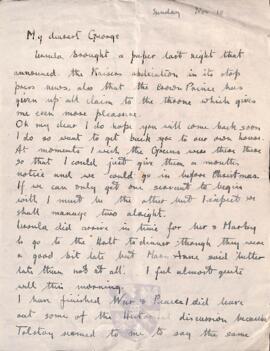 Sunday Nov 10
My dearest George
Ursula brought a paper last night that
announced the Kaisers abdication in its stop
press news, also that the Crown Prince has
given up all claim to the throne which gives
me even more pleasure.
Oh my dear I do hope you will come back soon
I do so want to get back you to our own house.
At moments I wish the Greens were there
so that I could just give them a months
notice and we could go in before Christmas.
If we can only get one servant to begin
with I must be the other but I expect we
shall manage two alright.
Ursula did arrive in time for her &
to go to the Halt to dinner though they were
a good bit late but Mary Anne said better
late than not at all. I feel almost quite
well this morning.
I have finished War & Peace I did leave
out some of the discussion because
Tolstoy seemed to me to say the same